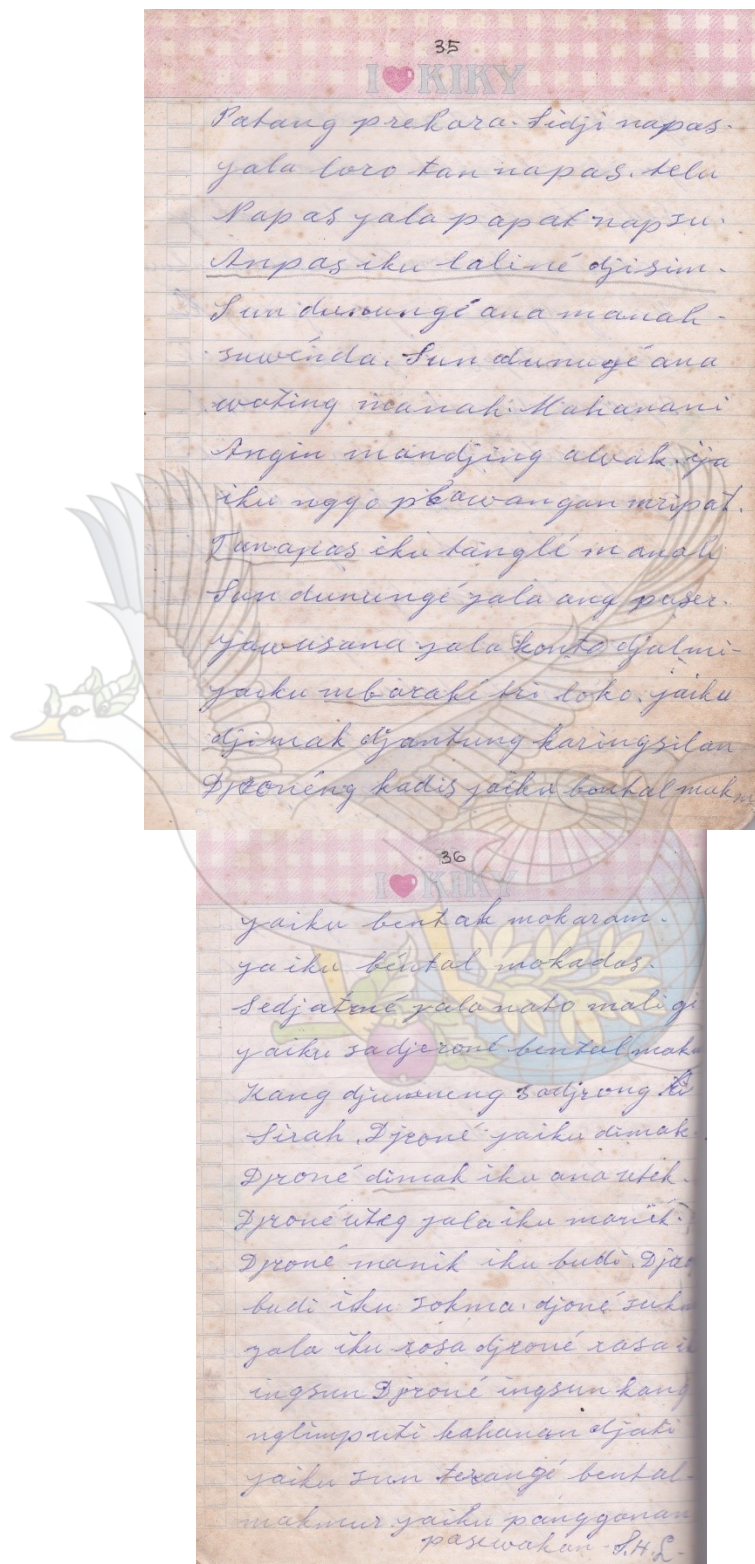 35
I ❤ KIKY
Patang prekara. Sidji napas.
yala loro tan napas. telu
Napas yala papat napsu.
Anpas iku laliné djisim.
Sun dunungé ana manah
suwénda. Sun dunugé ana
woting manah. Mahanani
Angin mandjing awak. ija
iku nggo plawangan mripat.
Tanapas iku tanglé manah
Sun dunungé yala ang puser.
yawusana yala konto djalmi-
yaiku mbarahé tri loko. yaiku
djimak djantung karingsilan
Djronéng kadis yaiku bental muk
36
I ❤ KIKY
yaiku bentak mokaram.
yaiku béntal mokados.
Sedjatiné yala nato maligi
yaiku sadjeroné bental mak
Kang djumeneng sadjrong
Sirah. Djroné yaiku dimak
Djroné dimak iku ana utek.
Djroné uteg yala iku manik.
Djroné manik iku budi.
budi iku sokma. djoné
yala iku rosa djroné rasa
ingsun Djroné ingsun kang
nglimputi kahanan djati
yaiku sun terangé bental-
makmur. yaiku panggonan
pasewakan - S.H.